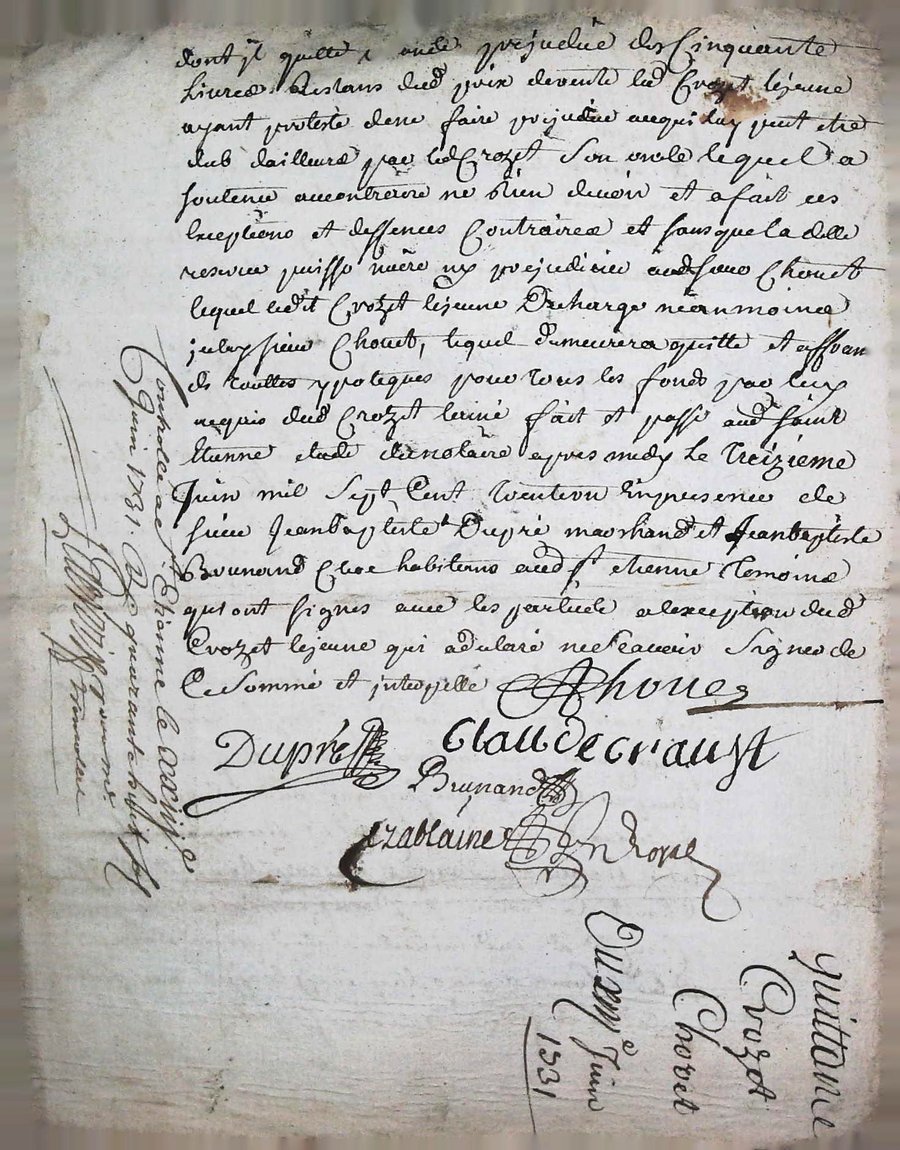 dont jl quitte sans prejudice des Cinquante
Livres Restans dud prix devente led Crozet lejeune
ayant proteste dene faire prejudice auquiluy peut etre
dub dailleurs par led Crozet Son oncle lequel a
soutenu aucontraire ne Rien devoir et afait ses
Exceptions et deffences Contraires et sansque la ditte
reserve puisse nuire ny prejudicier aud sieur Chouet
lequel ledit Crozet lejeune Decharge neanmoins
jceluy sieur Chouet, lequel demeurera quitte et affran
de touttes ypoteques pour tous les fonds par luy
acquis dud Crozet laine fait et passé aud saint
Etienne etude dunotaire apres midy Le Treizieme
Juin mil Sept Cent trenteun En presence de
sieur Jeanbaptiste Dupré marchand et Jeanbaptiste
Brunand Clerc habitans aud st etienne Temoins
quiont signés avec les parties alexception dud
Crozet lejeune qui adeclaré nesçavoir Signer de
Ce Sommé et interpellé Chouet
Dupré Claude craust
Brunand
Nd Royal
Controlle a St Etienne le
juin 1731. Rc quarante huit s
quittance
Crozet
Chovet
Du Juin
1731